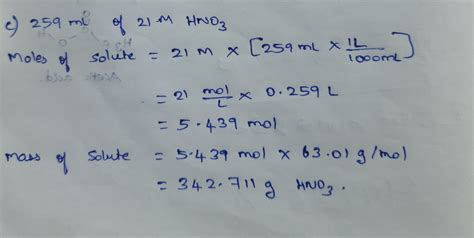 c) 259 mL of 21 M HNO3
Moles of solute = 21 M × [259 mL × 1L/1000mL]
= 21 mol/L × 0.259 L
= 5.439 mol
Mass of solute = 5.439 mol × 63.01 g/mol
= 342.711 g HNO3.